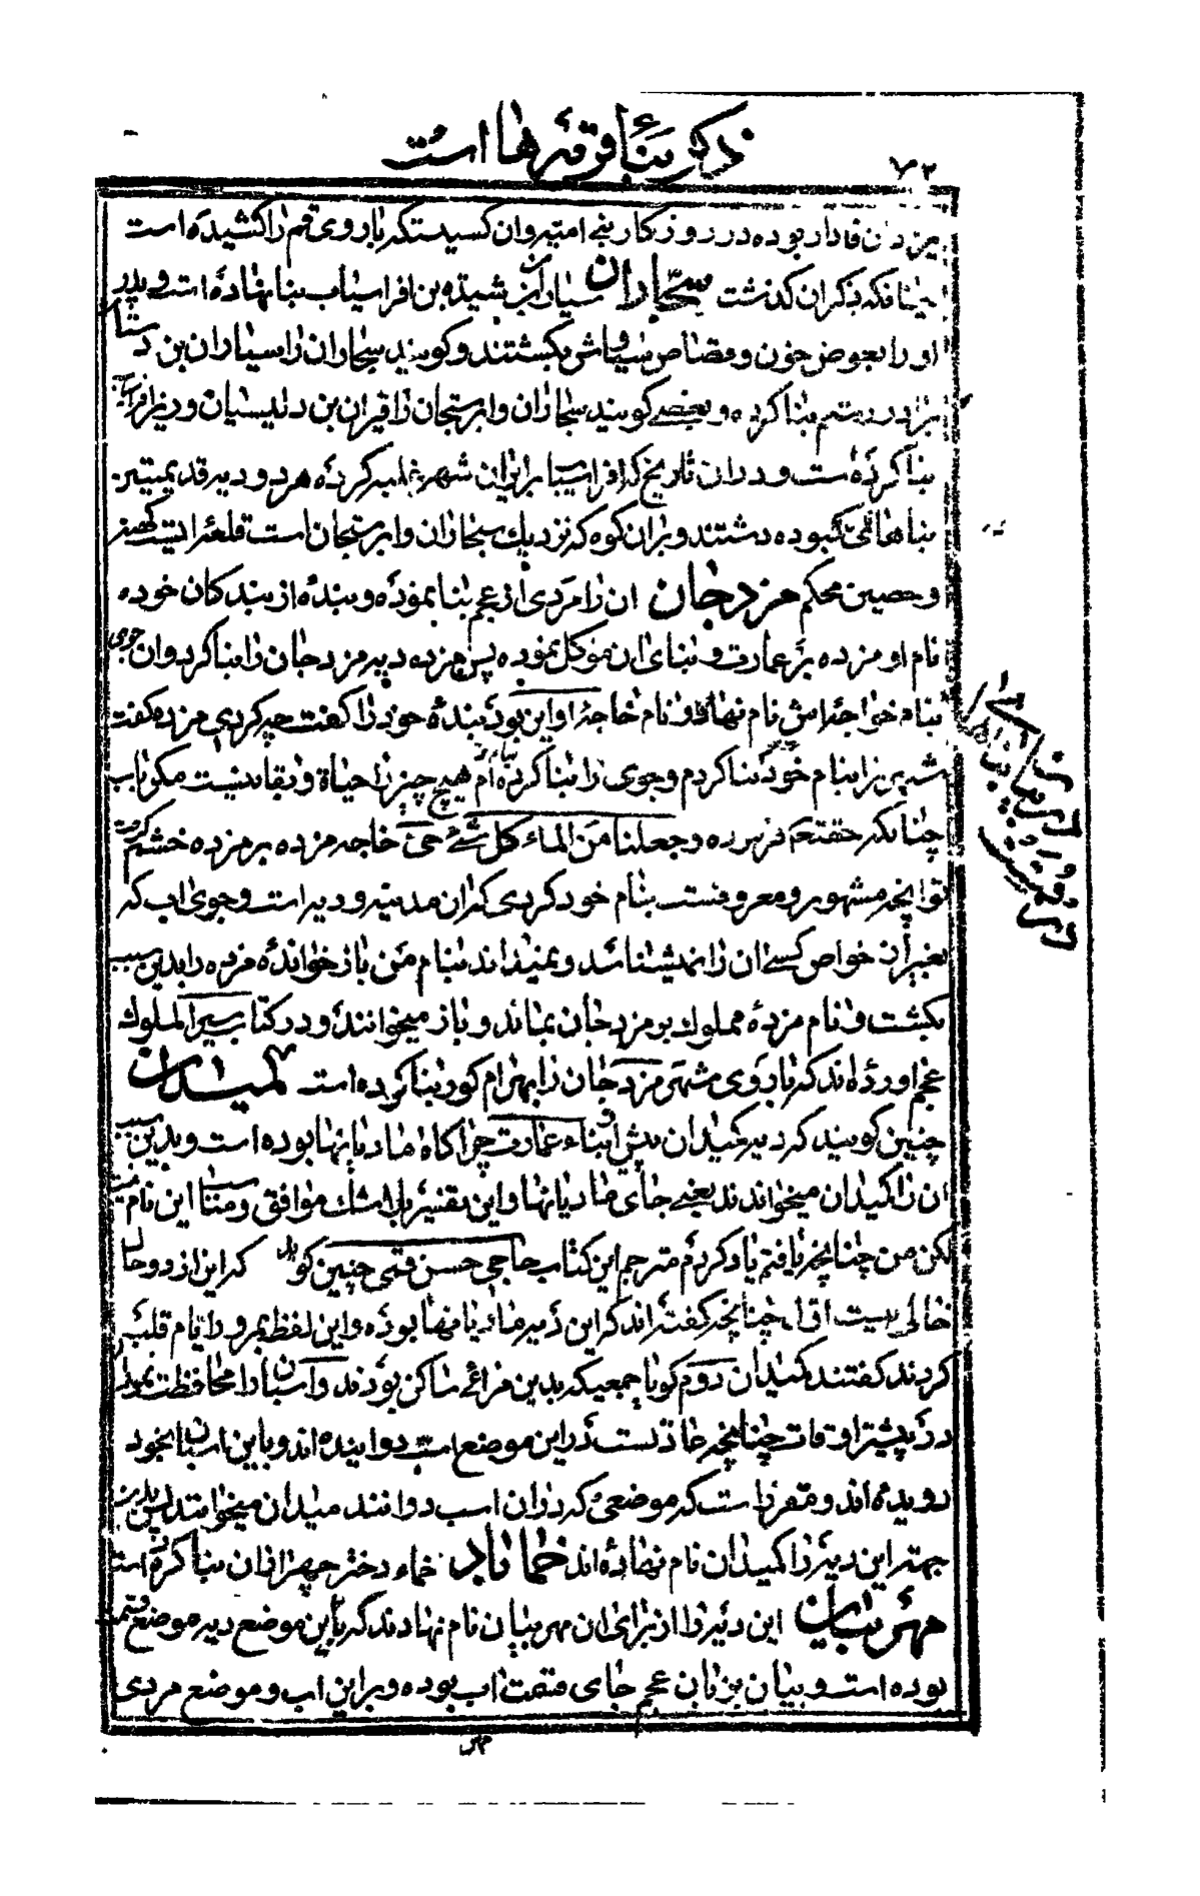 ذکر بناء قریه‌ها است
۷۲
یزدان فادار بوده در روزگار بنی امیه و ان کسیست که باروی قم را کشیده است
چنانکه ذکر ان گذشت سجاران سیاران بن شیده بن افراسیاب بنا نهاده است و پدر
او را بعوض خون و قصاص سیاوش بکشتند و گویند سجاران را سیاران بن دستان
برادر رستم بنا کرده و بعضی گویند سجاران و ابرستجان را قیران بن دلیسیان وزیر افراسیاب
بنا کرده است و در ان تاریخ که افراسیاب بر این شهر غلبه کرده هر دو دیه قدیمیترین
بناهائی که بوده هستند و بر ان کوه که نزدیک سجاران و ابرستجان است قلعه ایست کهنه
و حصین محکم مزدجان ان را مردی از عجم بنا نموده و بنده از بندگان خود
نام او مزده بر عمارت و بنای ان موکل نموده پس مزده دیه مزدجان را بنا کرد و ان جوی
بنام خواجه‌اش نام نهاد و نام خاجه او این بود بنده خود را گفت چه کردی مزده گفت
شهر را بنام خود بنا کردم و جوی را بنا کرده‌ام هیچ چیز را حیاة و بقا نیست مگر باب
چنانکه حقتعالی فرموده وجعلنا من الماء کل شئ حی خاجه مزده بر مزده خشم گرفت
توانچه مشهور و معروفست بنام خود کردی که ان مدینه و دیه است و جوی اب که
بغیر از خواص کسی ان را نمیشناسد و نمیداند بنام من باز خوانده مزده را بدین سبب
بکشت و نام مزده مملوک بر مزدجان بماند و باز میخوانند و در کتاب سیر الملوک
عجم اورده‌اند که باروی شهر مزدجان را بهرام گور بنا کرده است کمیدان
چنین گویند که دیه کمیدان پیش از بناء و عمارت چراگاه مادیانها بوده است و بدین سبب
ان را کمیدان میخواندند یعنی جای مادیانها و این تفسیر بلا شک موافق و مناسب این نام نیست
لکن من چنانچه یافتم یاد کردم مترجم این کتاب حاجی حسن قمی چنین گوید که این از دو حال
خالی نیست اول چنانچه گفته‌اند که این دیه مادیانها بوده و این لفظ بمرور ایام قلبه
کردند گفتند کمیدان دوم گویا جمعیکه بدین مزارع ساکن بودند و اسبان را محافظت نمودند
در بیشتر اوقات چنانچه عادتست در این موضع اسب دوانیده‌اند و با این اسبان بخود
دویده‌اند و مقرر است که موضعی که در ان اسب دوانند میدان میخوانند پس بدین
جهت این دیه را کمیدان نام نهاده‌اند خماناباد خماء دختر چهرازان بنا کرده است
مهربانان این دیه را از برای ان مهربانان نام نهادند که باین موضع دیه موضع قسمت
بوده است و بیان بزبان عجم جای قسمت اب بوده و بر این اب و موضع مردی
مهر